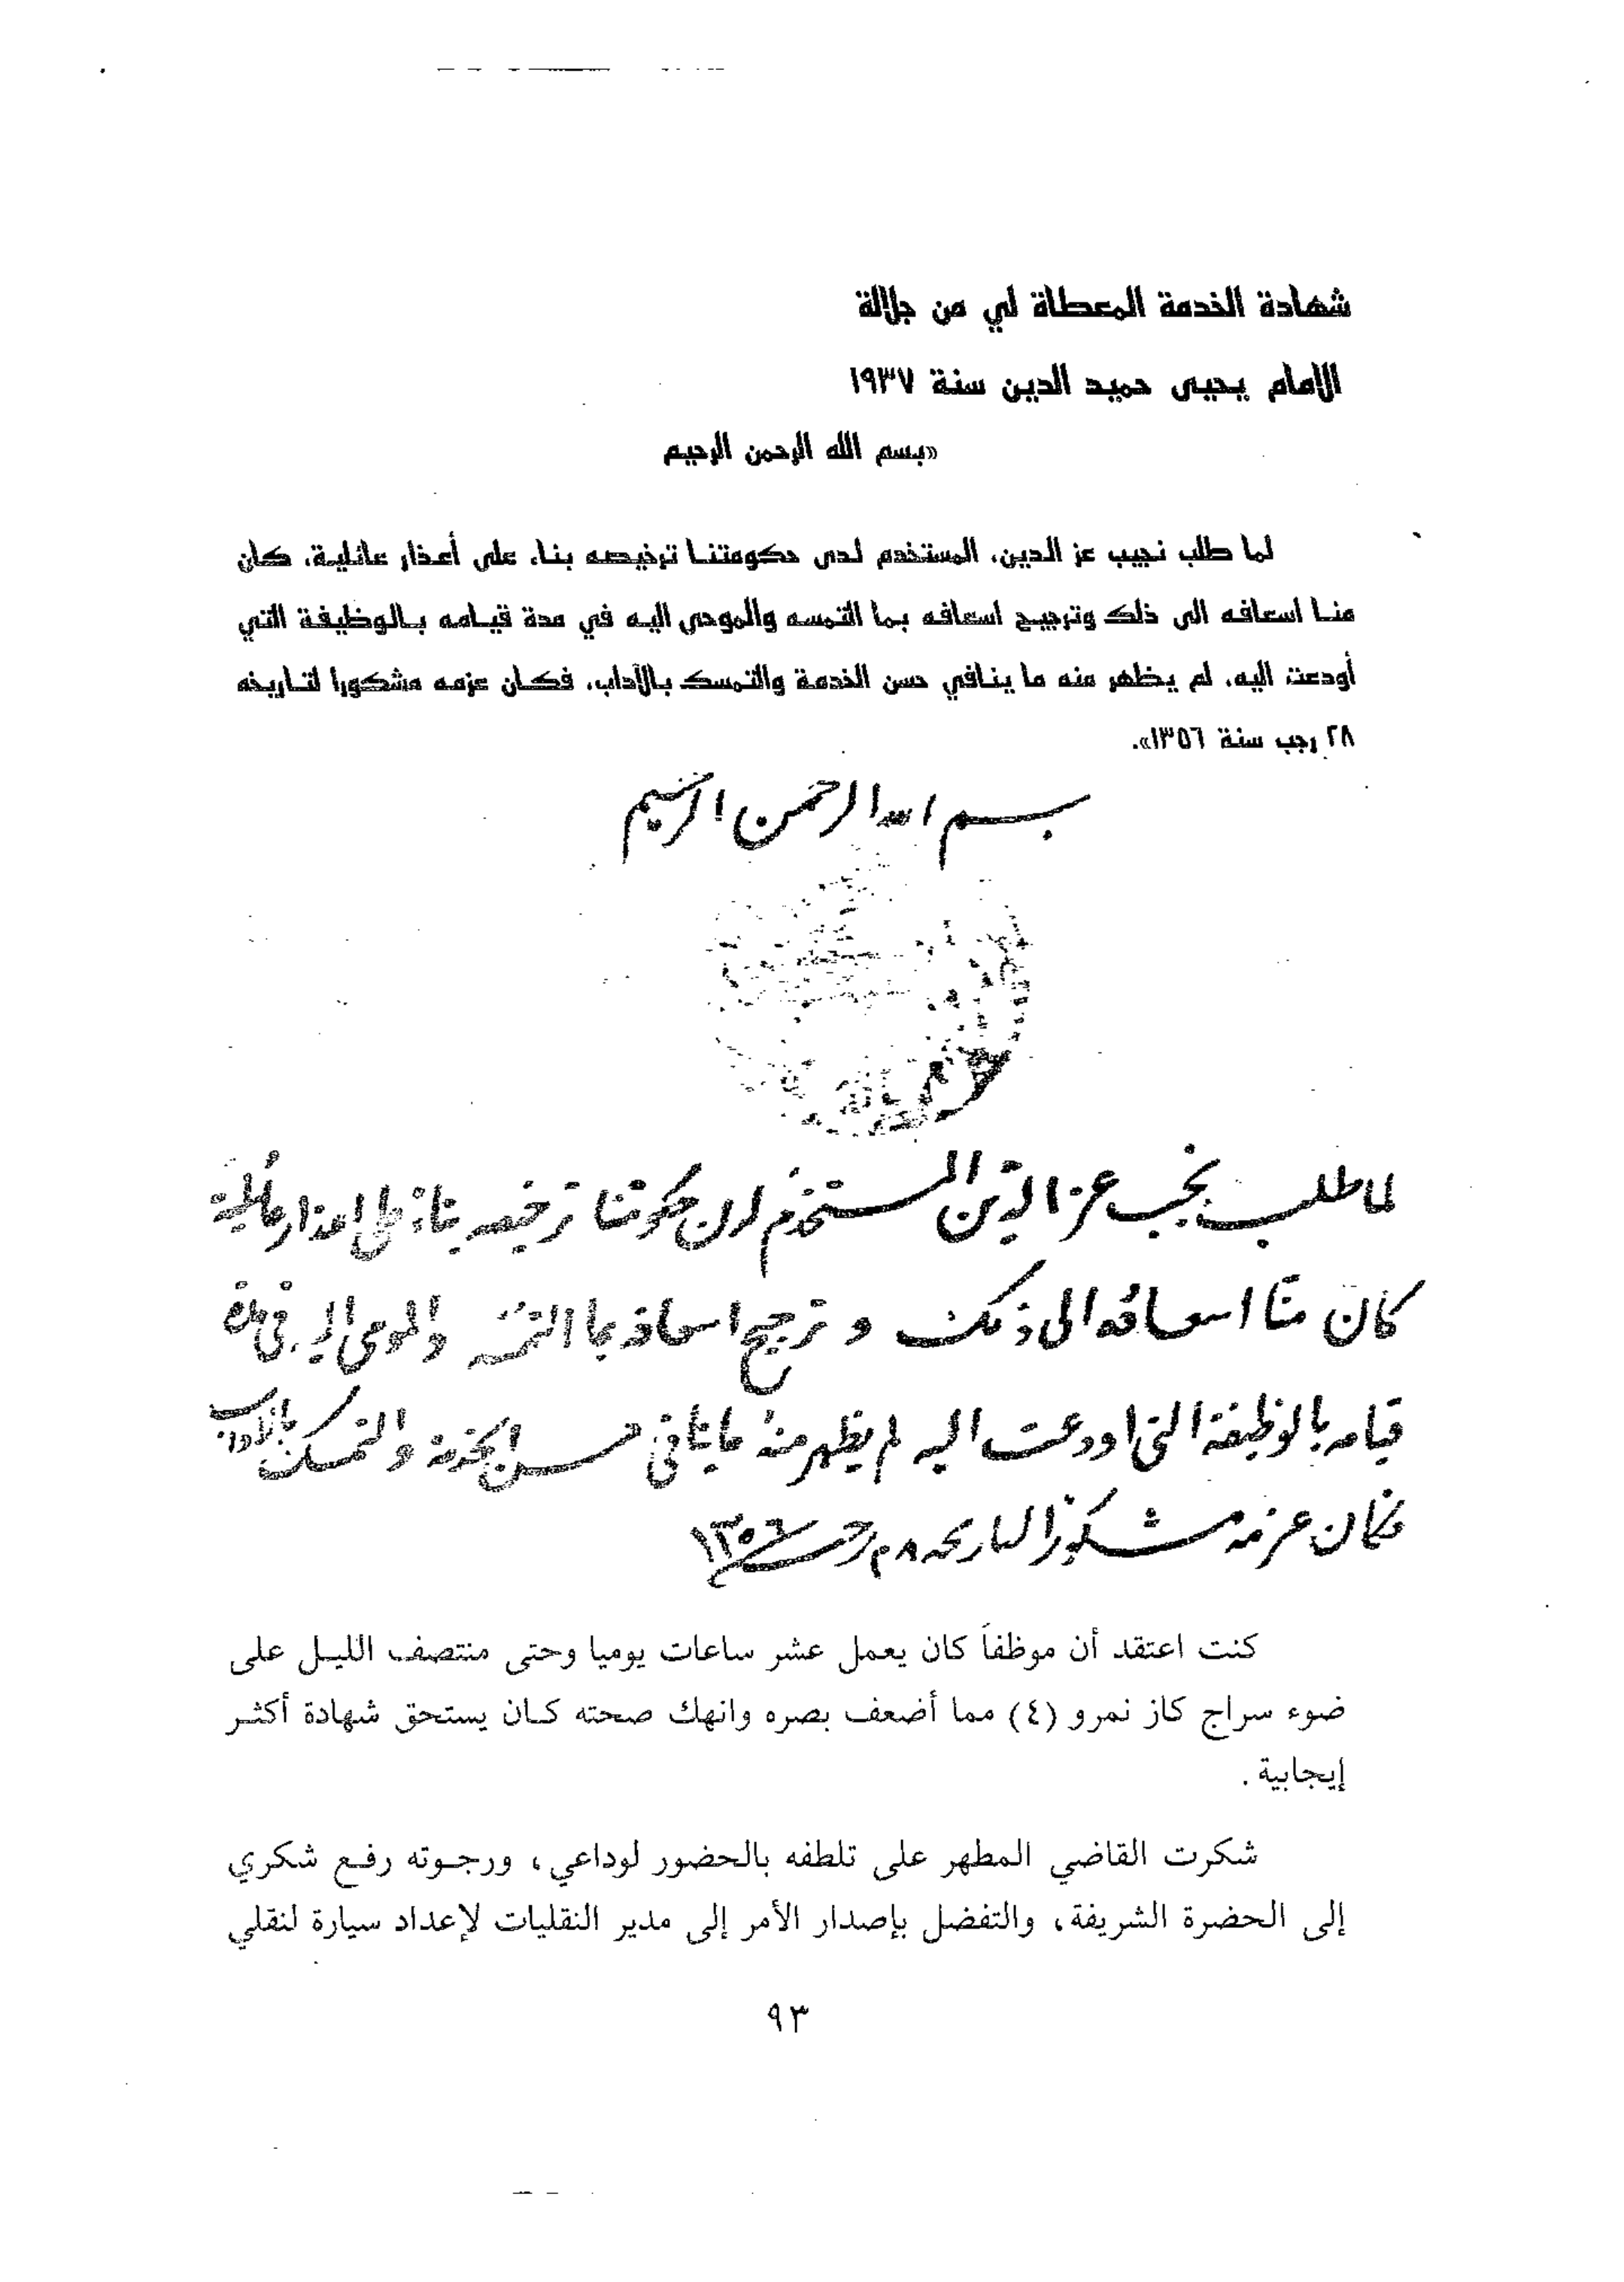 شهادة الخدمة المعطاة لي من جلالة
الإمام يحيى حميد الدين سنة ١٩٣٧
«بسم الله الرحمن الرحيم
لما طلب نجيب عز الدين، المستخدم لدى حكومتنا ترخيصه بناء على أعذار عائلية، كان
منا اسعافه الى ذلك وترجيح اسعافه بما التمسه والموحى اليه في مدة قيامه بالوظيفة التي
أودعت اليه، لم يظهر منه ما ينافي حسن الخدمة والتمسك بالآداب، فكان عزمه مشكورا لتاريخه
٢٨ رجب سنة ١٣٥٦».
بسم الله الرحمن الرحيم
لما طلب نجيب عز الدين المستخدم لدى حكومتنا ترخيصه بناءً على اعذار عائلية
كان منّا اسعافه الى ذلك و ترجيح اسعافه بما التمسه والمومى اليه في مدة
قيامه بالوظيفة التي اودعت اليه لم يظهر منه ما ينافي حسن الخدمة والتمسك بالآداب
فكان عزمه مشكورًا لتاريخه ٢٨ رجب سنة ١٣٥٦
كنت اعتقد أن موظفاً كان يعمل عشر ساعات يوميا وحتى منتصف الليل على
ضوء سراج كاز نمرو (٤) مما أضعف بصره وانهك صحته كان يستحق شهادة أكثر
إيجابية .
شكرت القاضي المطهر على تلطفه بالحضور لوداعي، ورجوته رفع شكري
إلى الحضرة الشريفة، والتفضل بإصدار الأمر إلى مدير النقليات لإعداد سيارة لنقلي
٩٣